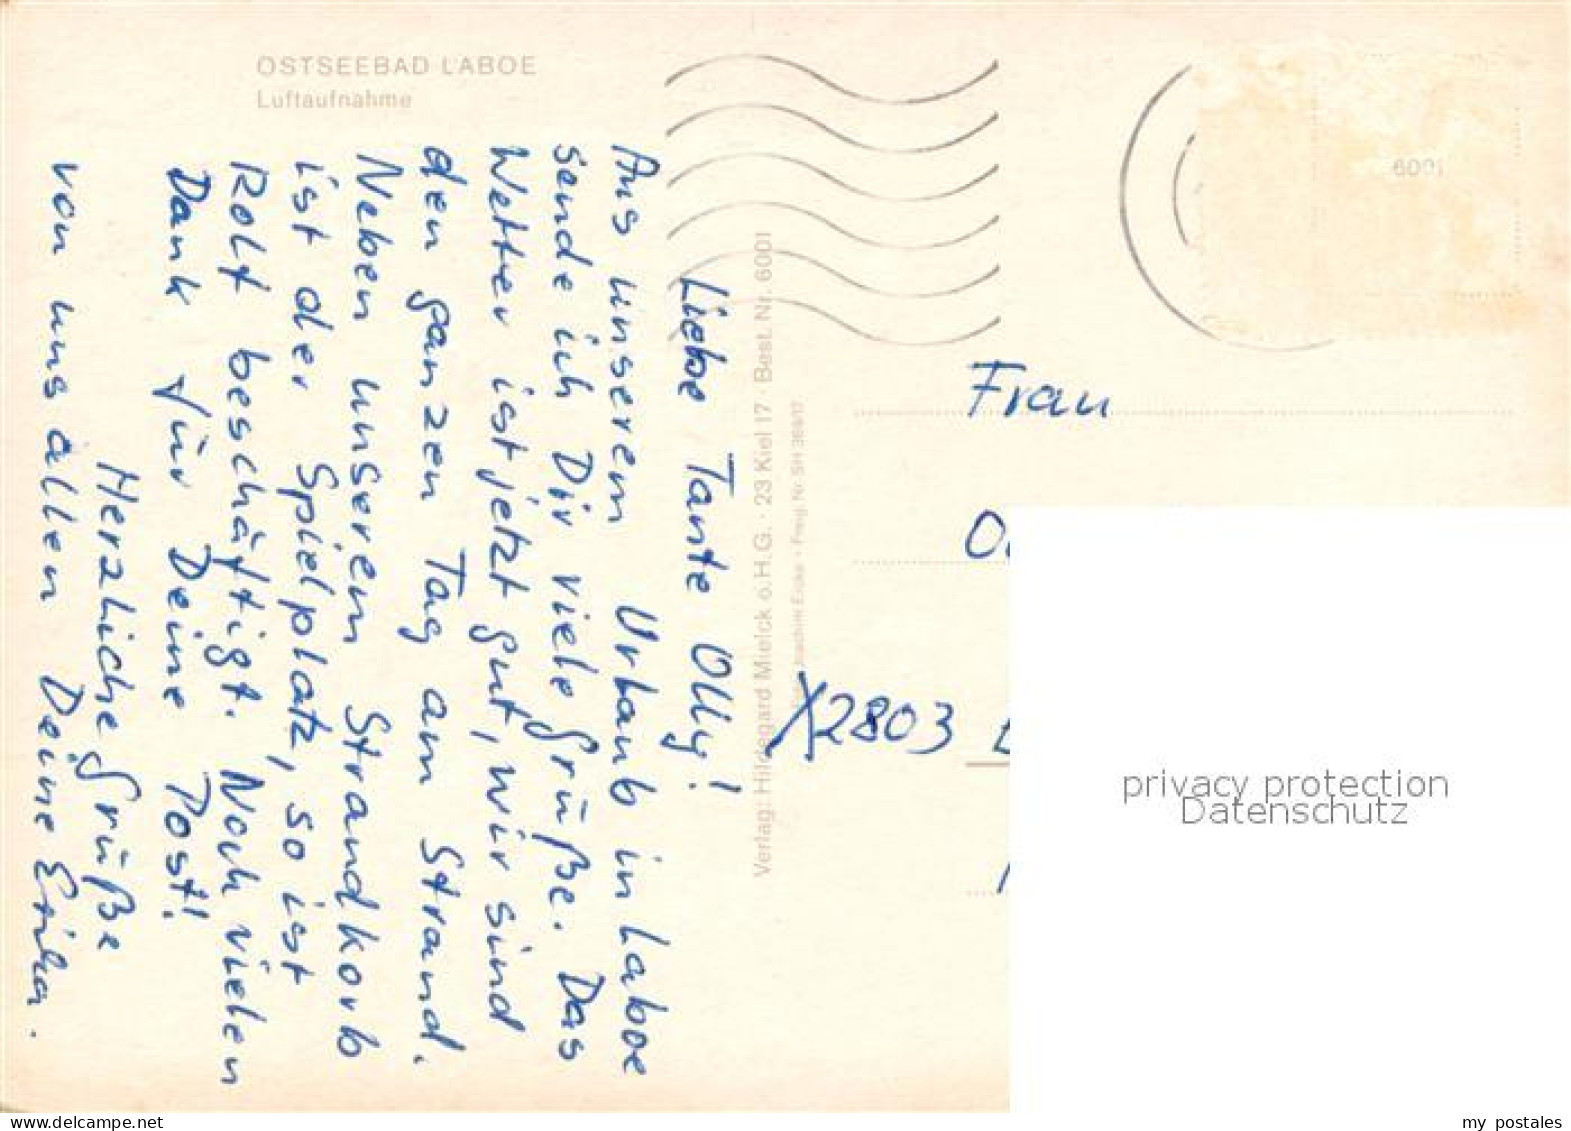 OSTSEEBAD LABOE
Luftaufnahme
Liebe Tante Olly!
Aus unserem Urlaub in Laboe
sende ich Dir viele Grüße. Das
Wetter ist jetzt gut, wir sind
den ganzen Tag am Strand.
Neben unserem Strandkorb
ist der Spielplatz, so ist
Rolf beschäftigt. Noch vielen
Dank für Deine Post!
Herzliche Grüße
von uns allen Deine Erika.
Verlag: Hildegard Mielck o.H.G. · 23 Kiel 17 · Best. Nr. 6001
6001
Frau
X2803
privacy protection
Datenschutz
www.delcampe.net
my_postales